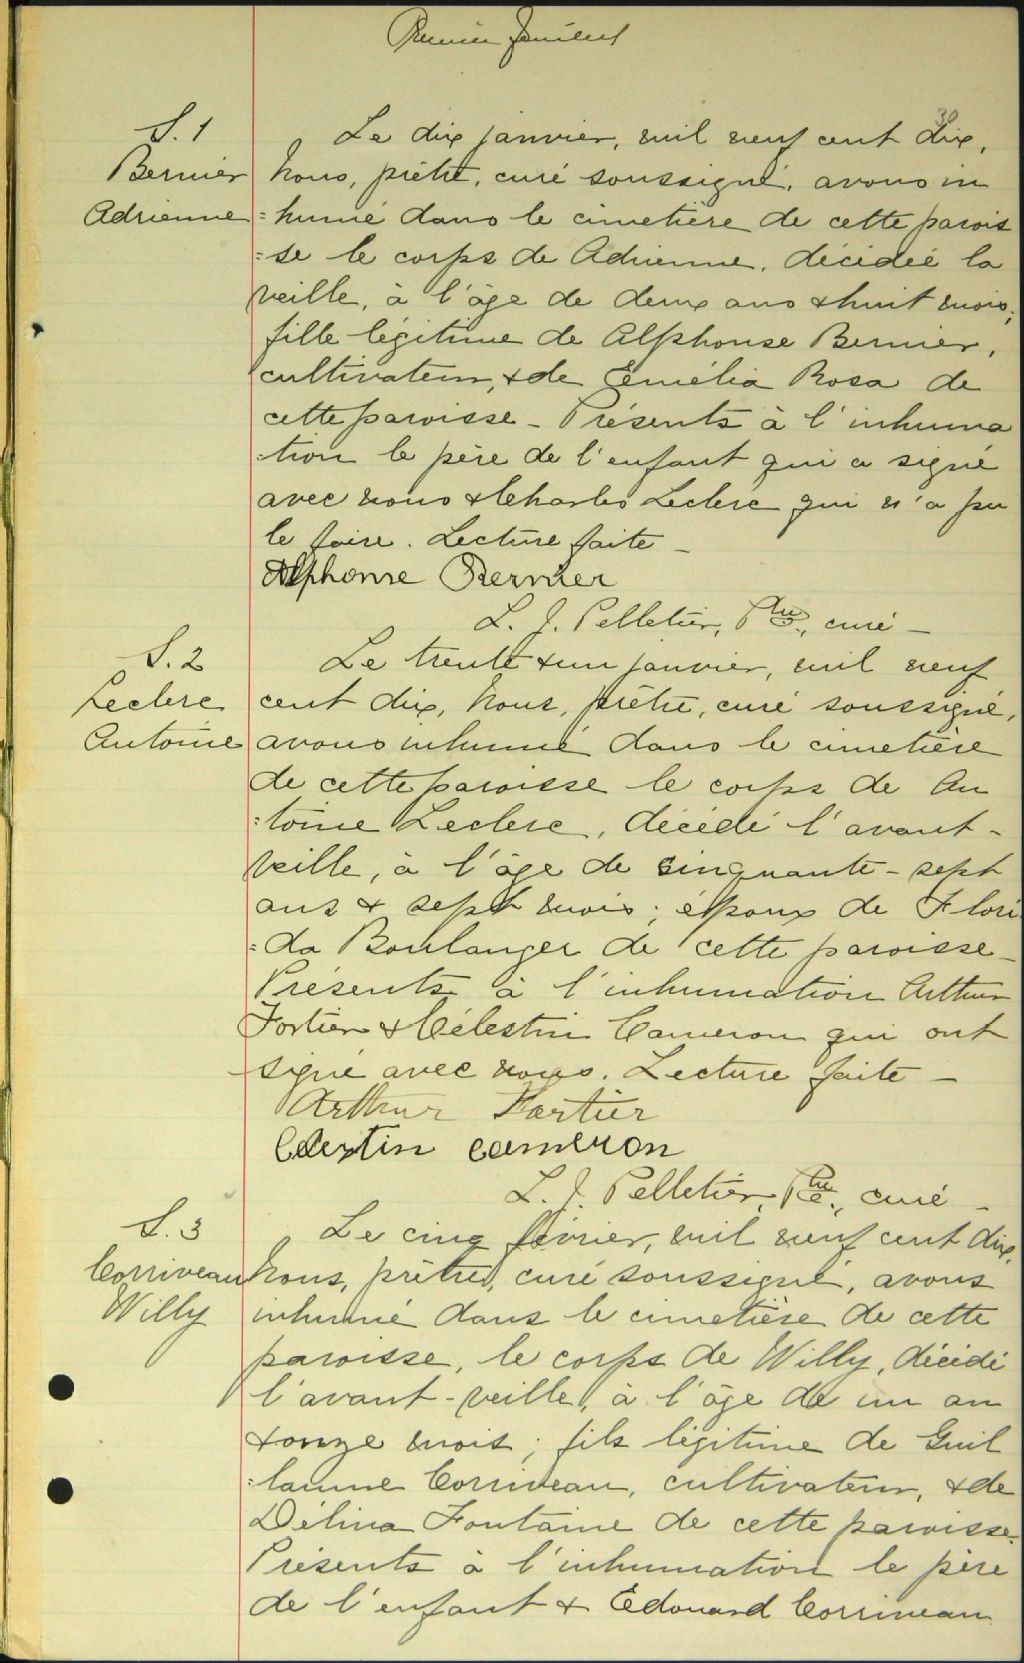 Premier feuillet
30
S. 1
Bernier
Adrienne
Le dix janvier, mil neuf cent dix,
Nous, prêtre, curé soussigné, avons in
=humé dans le cimetière de cette parois
=se le corps de Adrienne, décédée la
veille, à l'âge de deux ans & huit mois;
fille légitime de Alphonse Bernier,
cultivateur, & de Emélia Rosa de
cette paroisse - Présents à l'inhuma
=tion le père de l'enfant qui a signé
avec nous & Charles Leclerc qui n'a pu
le faire. Lecture faite -
Alphonse Bernier
L. J. Pelletier, Ptre, curé -
S. 2
Leclerc
Antoine
Le trente & un janvier, mil neuf
cent dix, Nous, prêtre, curé soussigné,
avons inhumé dans le cimetière
de cette paroisse le corps de An
=toine Leclerc, décédé l'avant-
veille, à l'âge de cinquante-sept
ans & sept mois; époux de Flori
=da Boulanger de cette paroisse -
Présents à l'inhumation Arthur
Fortier & Célestin Cameron qui ont
signé avec nous. Lecture faite -
Arthur Fortier
Celestin Cameron
L. J. Pelletier, Ptre, curé -
S. 3
Corriveau
Willy
Le cinq février, mil neuf cent dix,
Nous, prêtre, curé soussigné, avons
inhumé dans le cimetière de cette
paroisse, le corps de Willy, décédé
l'avant-veille, à l'âge de un an
& onze mois; fils légitime de Guil
=laume Corriveau, cultivateur, & de
Délina Fontaine de cette paroisse.
Présents à l'inhumation le père
de l'enfant & Edouard Corriveau